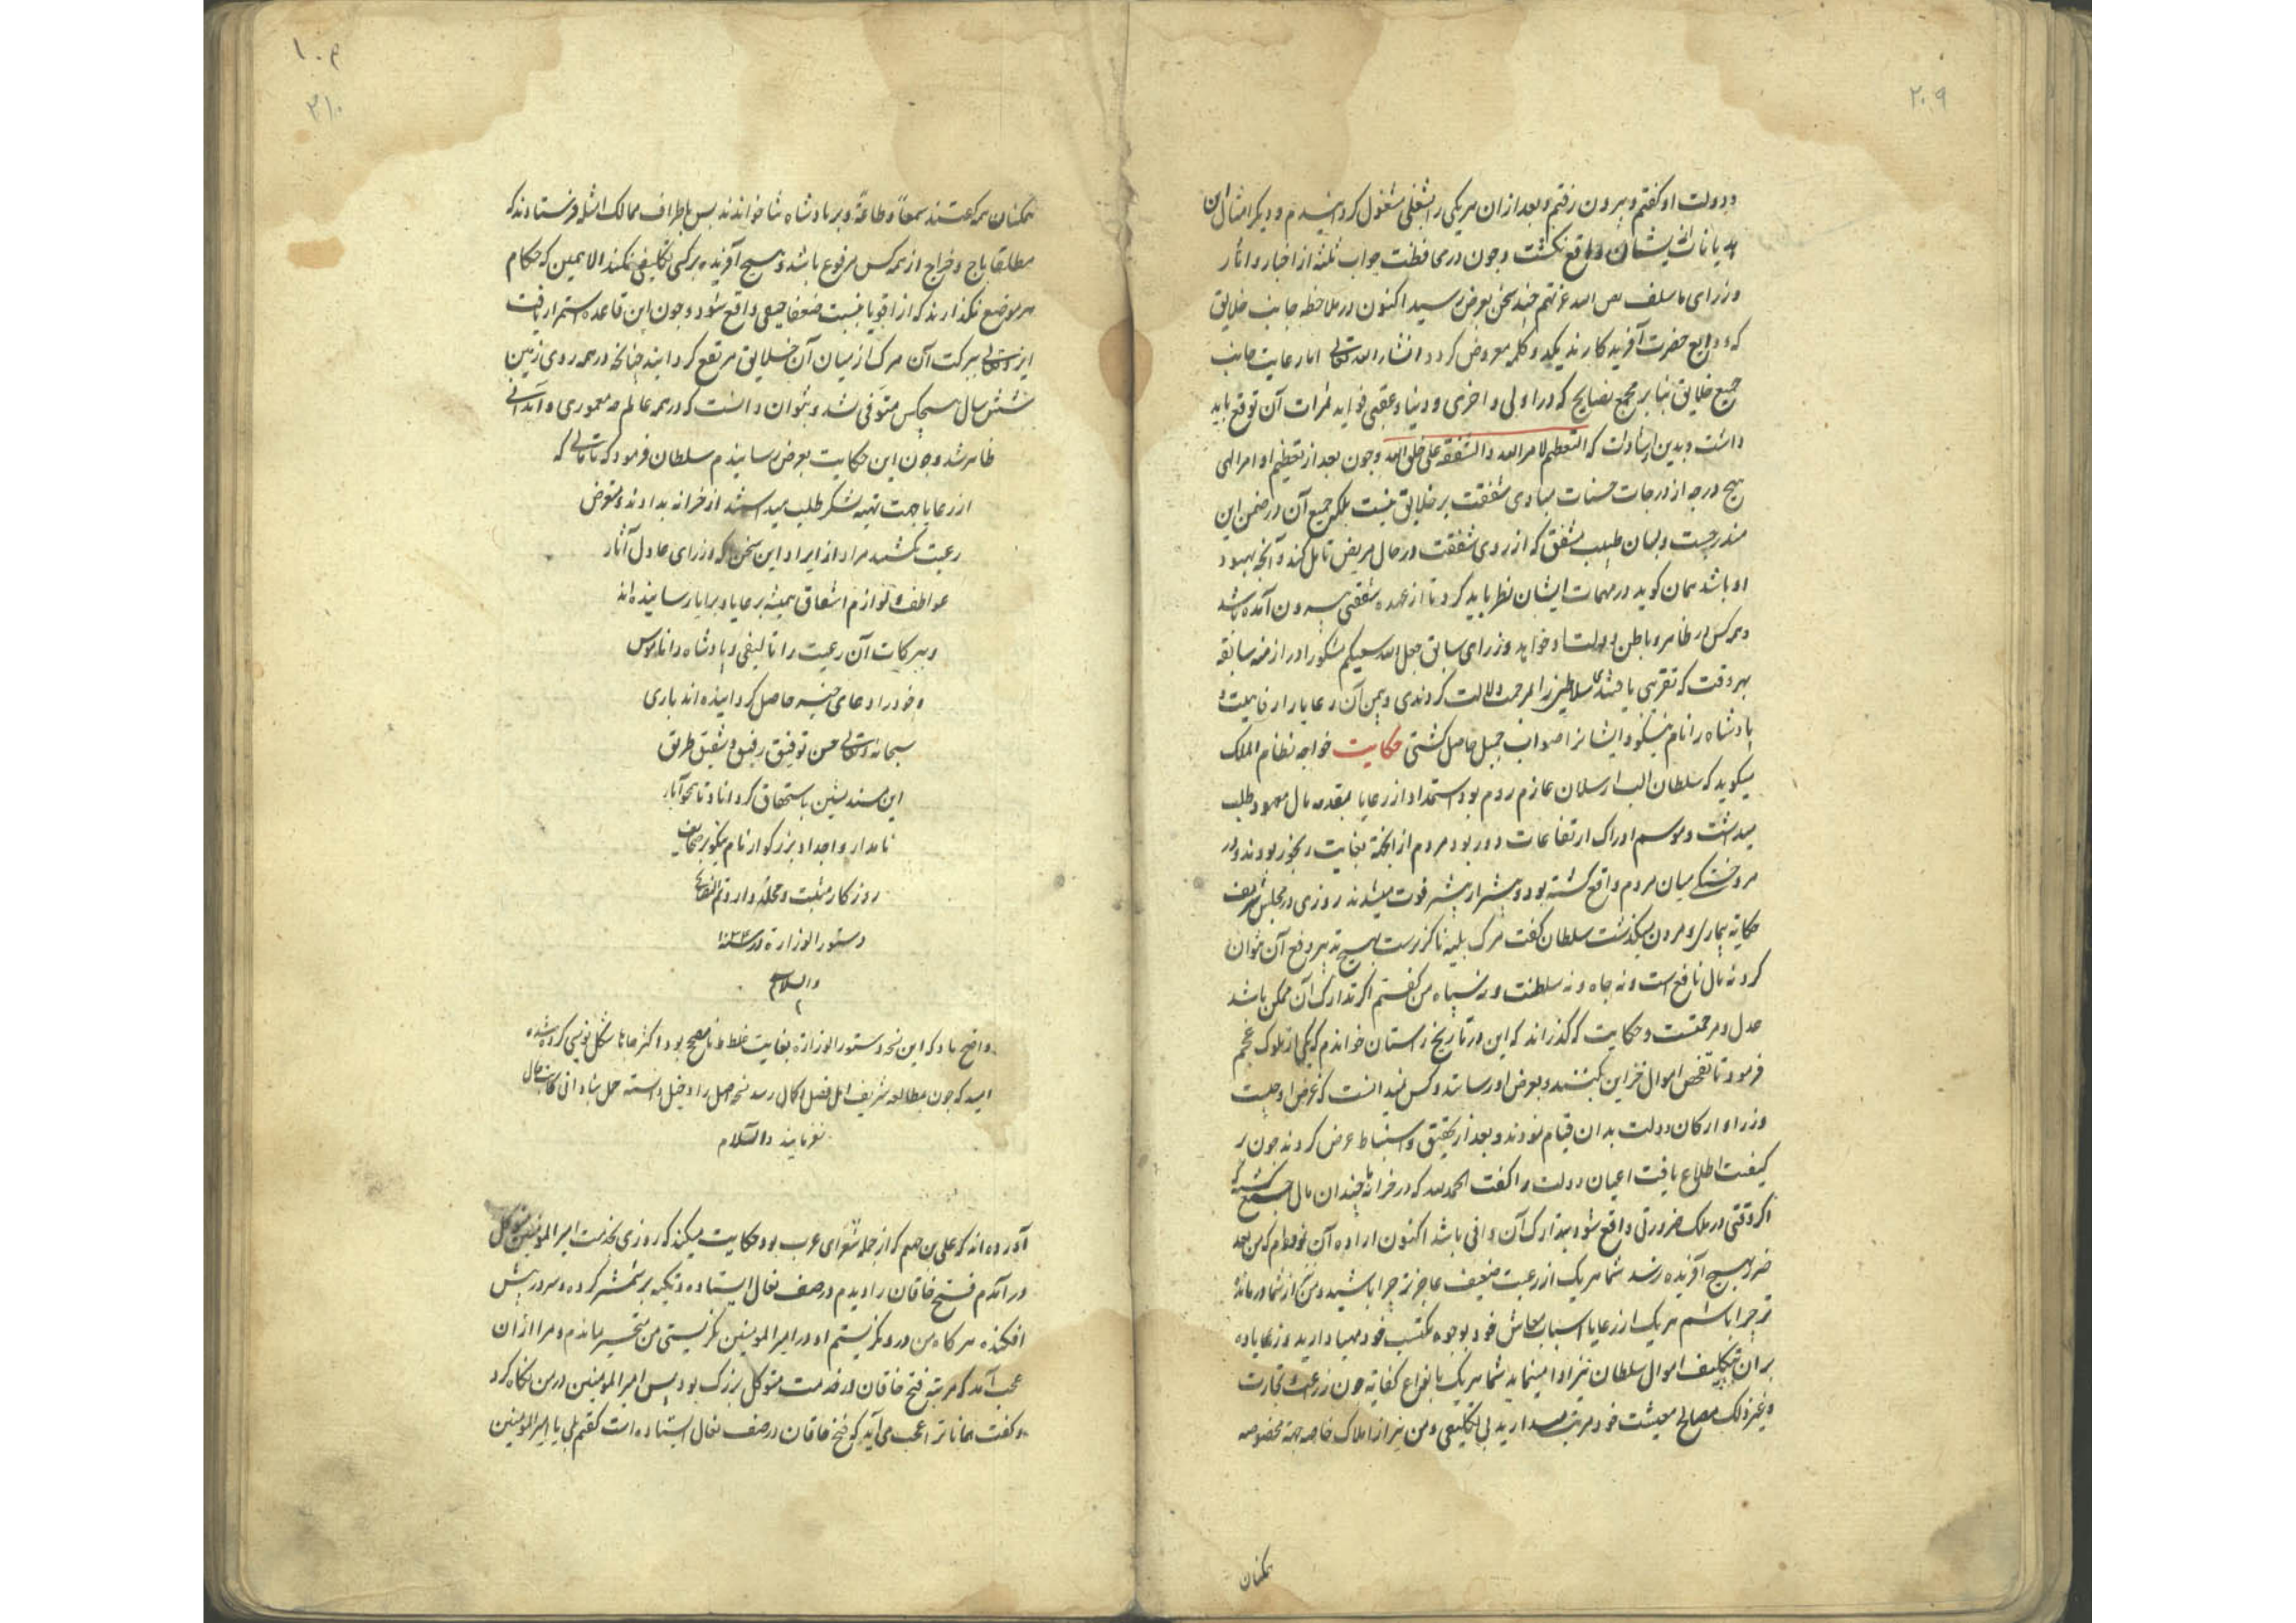 ۲۰۹
و دولت او گفتم و بیرون رفتم و بعد از ان هر یکی را بشغلی مشغول گردانیدم و دیگر امثال این
هذیانات ایشان واقع نگشت و چون در محافظت جواب ثلثه از اخبار و اثار
وزرای ما سلف چند سخن بعرض رسید اکنون در ملاحظه جانب خلایق
که ودایع حضرت آفریدکارند یکدو کلمه معروض کردد انشاء الله تعالی اما رعایت جانب
جمیع خلایق بنا بر مجمع نصایح که در اولی و اخری و دنیا و عقبی فواید ثمرات آن توقع باید
داشت و بدین اشارت که التعظیم لامر الله و الشفقة علی خلق الله و چون بعد از تعظیم اوامر الهی
هیچ درجه از درجات حسنات مساوی شفقت بر خلایق نیست بلکه جمیع آن در ضمن این
مندرجست و بسان طبیب مشفق که از روی شفقت در حال مریض تامل کند و آنچه بهبود
او باشد همان کوید در مهمات ایشان نظر باید کرد تا از عهده شفقتی بیرون آمده باشد
و همه کس در ظاهر و باطن دولت او خواهد وزرای سابق جعل الله سعیکم مشکورا در ازمنه سابقه
بهر وقت که تقریبی یافتندی سلاطین را بمرحمت دلالت کردندی و بیمن آن رعایا را رفاهیت و
پادشاه را نام نیکو و ایشانرا صواب جمیل حاصل کشتی حکایت خواجه نظام الملک
میکوید که سلطان الب ارسلان عازم روم بود استمداد از رعایا بمقدمه مال معهود طلب
میداشت و موسم ادراک ارتفاعات دور بود مردم از انجهة بغایت رنجور بودند و در
مرو میان مردم واقع کشته بود و بیشتر از پیشتر فوت میشدند روزی در مجلس شریف
حکایة بیماری و مردن میکذشت سلطان گفت مرک بلیه ناکزیرست بهیچ تدبیر دفع آن نتوان
کرد نه مال نافع است و نه جاه و نه سلطنت و نه سپاه من گفتم اکر تدارک آن ممکن باشد
عدل و مرحمتست و حکایت که گذراند که این در تاریخ راستان خواندم که یکی از ملوک عجم
فرمود تا تفحص اموال خزاین کنند و بعرض او رسانند و کس نمیدانست که غرض او چیست
وزرا و ارکان دولت بدان قیام نمودند و بعد از تحقیق و استنباط عرض کردند چون بر
کیفیت اطلاع یافت اعیان دولت را گفت الحمد لله که در خزانه ما چندان مال جمع کشته که
اکر وقتی در ملک ضرورتی واقع شود بتدارک آن وافی باشد اکنون اراده آن فرموده‌ام که من بعد
ضرر بهیچ آفریده نرسد شما هر یک از رعیت ضعیف عاجزتر چرا باشید و من از شما درمانده
تر چرا باشم هر یک از رعایا اسباب معاش خود بوجوه مکتسب خود مهیا دارید و رعایا ده
بران تکلیف اموال سلطان نیز ادا مینماید شما هر یک با انواع کفایة چون زراعت و تجارت
و غیر ذلک مصالح معیشت خود مرتب میدارید بی تکلیفی و من نیز از املاک خاصه جهة مخصوصه
همکنان
۲۱۰
همکنان همه گفتند سمعاً و طاعةً و بر پادشاه ثنا خواندند پس باطراف ممالک امثله فرستادند که
مطلقا باج و خراج از همه کس مرفوع باشد و هیچ آفریده بر کسی تکلیفی نکند الا همین که حکام
هر موضع نکذارند که از اقویا بنسبت ضعفا حیفی واقع شود و چون این قاعده استمرار یافت
ایزد تعالی ببرکت آن مرک از میان آن خلایق مرتفع گردانید چنانکه در همه روی زمین
شش سال هیچکس متوفی نشد و نتوان دانست که در همه عالم چه معموری و آبادانی
ظاهر شد و چون این حکایت بعرض رسانیدم سلطان فرمود که تا مالی که
از رعایا جهت تهیه لشکر طلب میداشتند از خزانه بدادند و متعرض
رعیت نکشتند مراد از ایراد این سخن که وزرای عادل آثار
عواطف و لوازم اشفاق همیشه برعایا و برایا رسانیده‌اند
و ببرکات آن رعیت را تالیفی و پادشاه را ناموس
و خود را دعای خیر حاصل گردانیده اند باری
سبحانه و تعالی حسن توفیق رفیق و شفیق طریق
این مسند نشین باستحقاق گرداناد تا همچو آباء
نامدار و اجداد بزرکوار نام نیکو بر صحایف
روزکار مثبت و مخلد دارد تم الکتاب
دستور الوزارة در سنه
والسلام
واضح باد که این نسخه دستور الوزارة بغایت غلط و نامصحح بود اکثر جاها شکل نویسی کرده شده
امید که چون بمطالعه شریف اهل فضل و کمال رسد نسخه اصل را دخیل دانسته حمل بنادانی کاتب حال
نفرمایند والسلام
آورده اند که علی بن جهم که از جمله شعرای عرب بود حکایت میکند که روزی بخدمت امیر المومنین متوکل
در آمدم فتح خاقان را دیدم در صف نعال ایستاده و تکیه بر شمشیر کرده و سر در پیش
افکنده هر کاه من در وی نکریستم او در امیر المومنین نکریستی من متحیر بماندم و مرا از ان
عجب آمد که مرتبه فتح خاقان در خدمت متوکل بزرک بود پس امیر المومنین در من نکاه کرد
و گفت همانا ترا عجب می آید که فتح خاقان در صف نعال ایستاده است گفتم بلی یا امیر المومنین